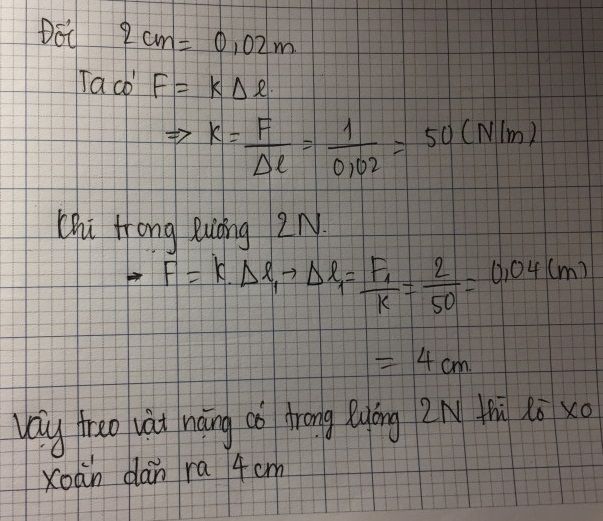 Đổi 2 cm = 0,02 m
Ta có F = K Δl.
⇒ K = F/Δl = 1/0,02 = 50 (N/m)
Khi trọng lượng 2N.
→ F = K. Δl₁ → Δl₁ = F₁/K = 2/50 = 0,04 (m)
= 4 cm
Vậy treo vật nặng có trọng lượng 2N thì lò xo
xoắn dãn ra 4 cm